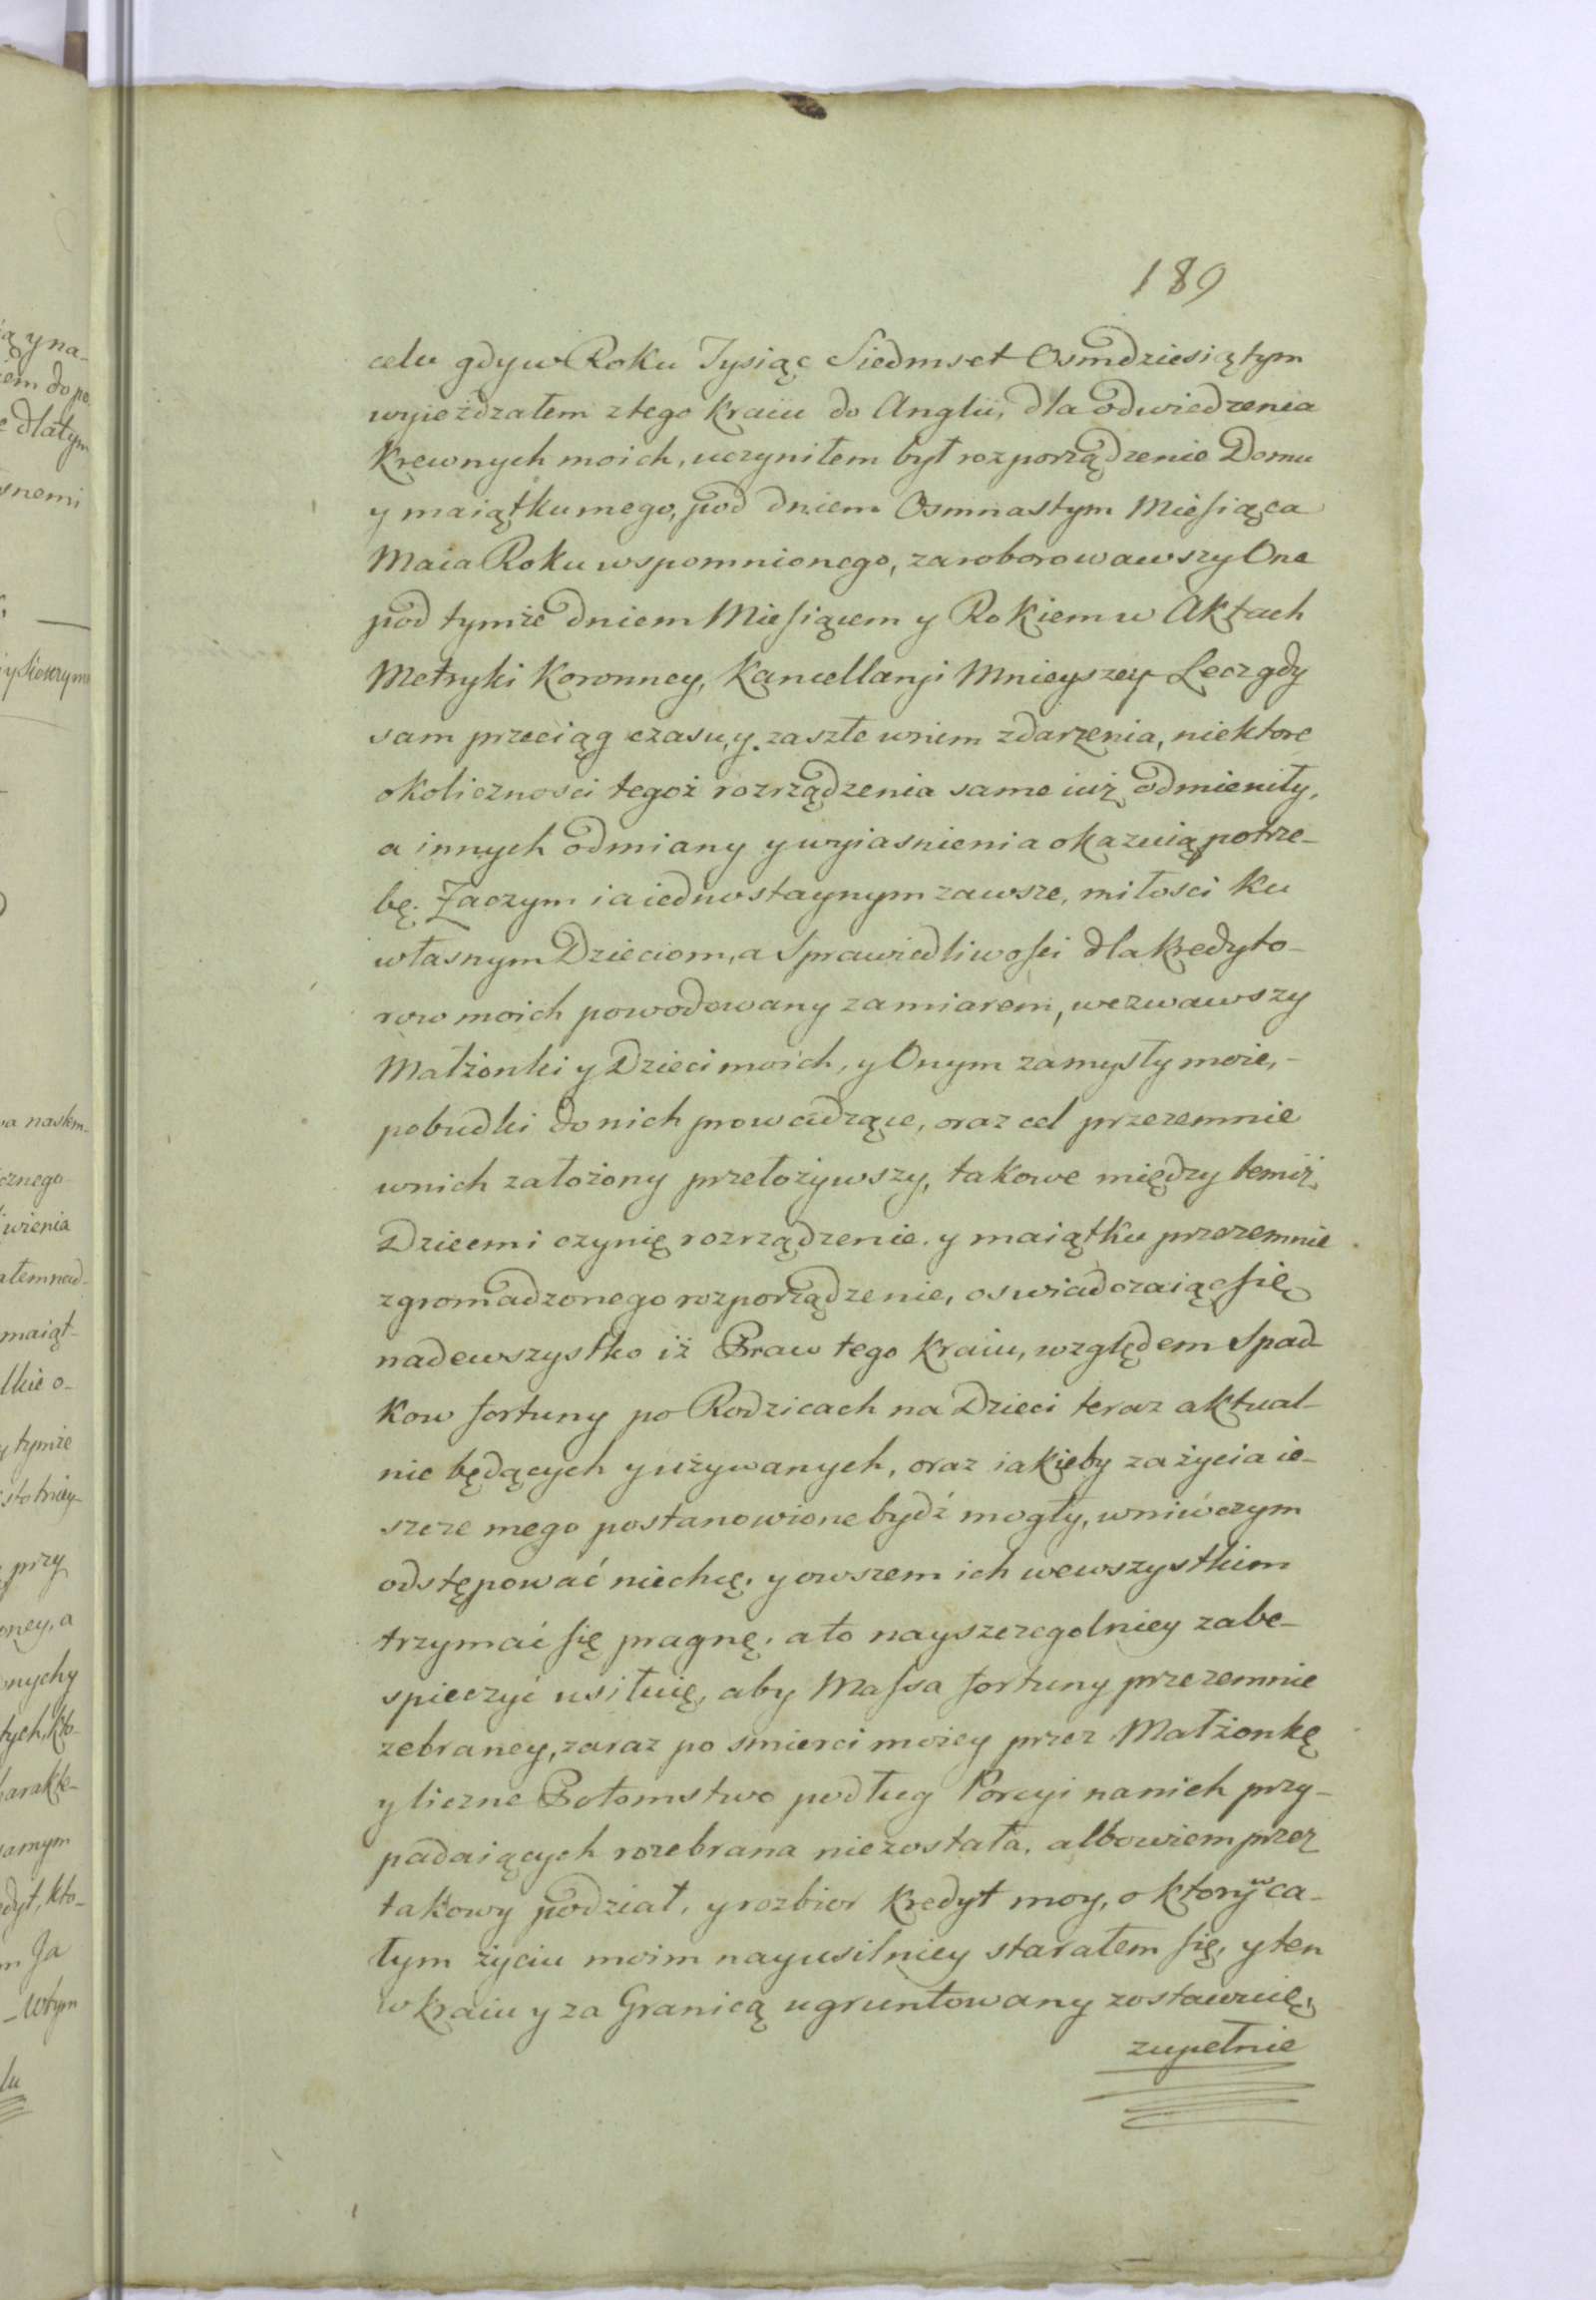 189
celu gdy w Roku Tysiąc Siedmset Osmdziesiątym
wyieżdzałem z tego kraiu do Anglii, dla odwiedzenia
krewnych moich, uczyniłem był rozporządzenie Domu
y maiątku mego, pod dniem Osmnastym Miesiąca
Maia Roku wspomnionego, zaroborowawszy One
pod tymże dniem Miesiącem y Rokiem w Aktach
Metryki Koronney, Kancellaryi Mnieyszey Lecz gdy
sam przeciąg czasu, y zaszłe w niem zdarzenia, niektore
okolicznosci tegoż rozrządzenia same iuż odmieniły,
a innych odmiany y wyiasnienia okazuią potrze-
bę. Zaczym ia iednostaynym zawsze, miłosci ku
własnym Dzieciom, a Sprawiedliwosci dla kredyto-
row moich powodowany zamiarem, wezwawszy
Małżonki y Dzieci moich, y Onym zamysły moie,-
pobudki do nich prowadzące, oraz cel przezemnie
w nich założony przełożywszy, takowe między temiż
Dziecmi czynię rozrządzenie. y maiątku przezemnie
zgromadzonego rozporządzenie, oswiadczaiąc się
nadewszystko iż Praw tego kraiu, względem Spad
kow fortuny po Rodzicach na Dzieci teraz aktual-
nie będących y używanych, oraz iakieby za życia ie-
szcze mego postanowione bydź mogły, w niwczym
odstępować niechcę, y owszem ich we wszystkiem
trzymać się pragnę, a to nayszczegolniey zabe-
spieczyć usiłuię, aby Massa fortuny przezemnie
zebraney, zaraz po smierci moiey przez Małżonkę
y liczne Potomstwo podług Porcyi na nich przy-
padaiących rozebrana niezostała, albowiem przez
takowy podział, y rozbior kredyt moy, o ktory w ca-
łym życiu moim nayusilniey starałem się, y ten
w kraiu y za Granicą ugruntowany zostawuię,
zupełnie
ą y na-
iem do po
e dla tym
snemi
y skoszym
a naskm-
cznego
iwienia
ałem nad-
maiąt-
lkie o-
y tymże
stotniey-
przy
oney, a
nych y
tych, kto-
harakte-
samym
edyt, kto-
m Ja
- w tym
lu